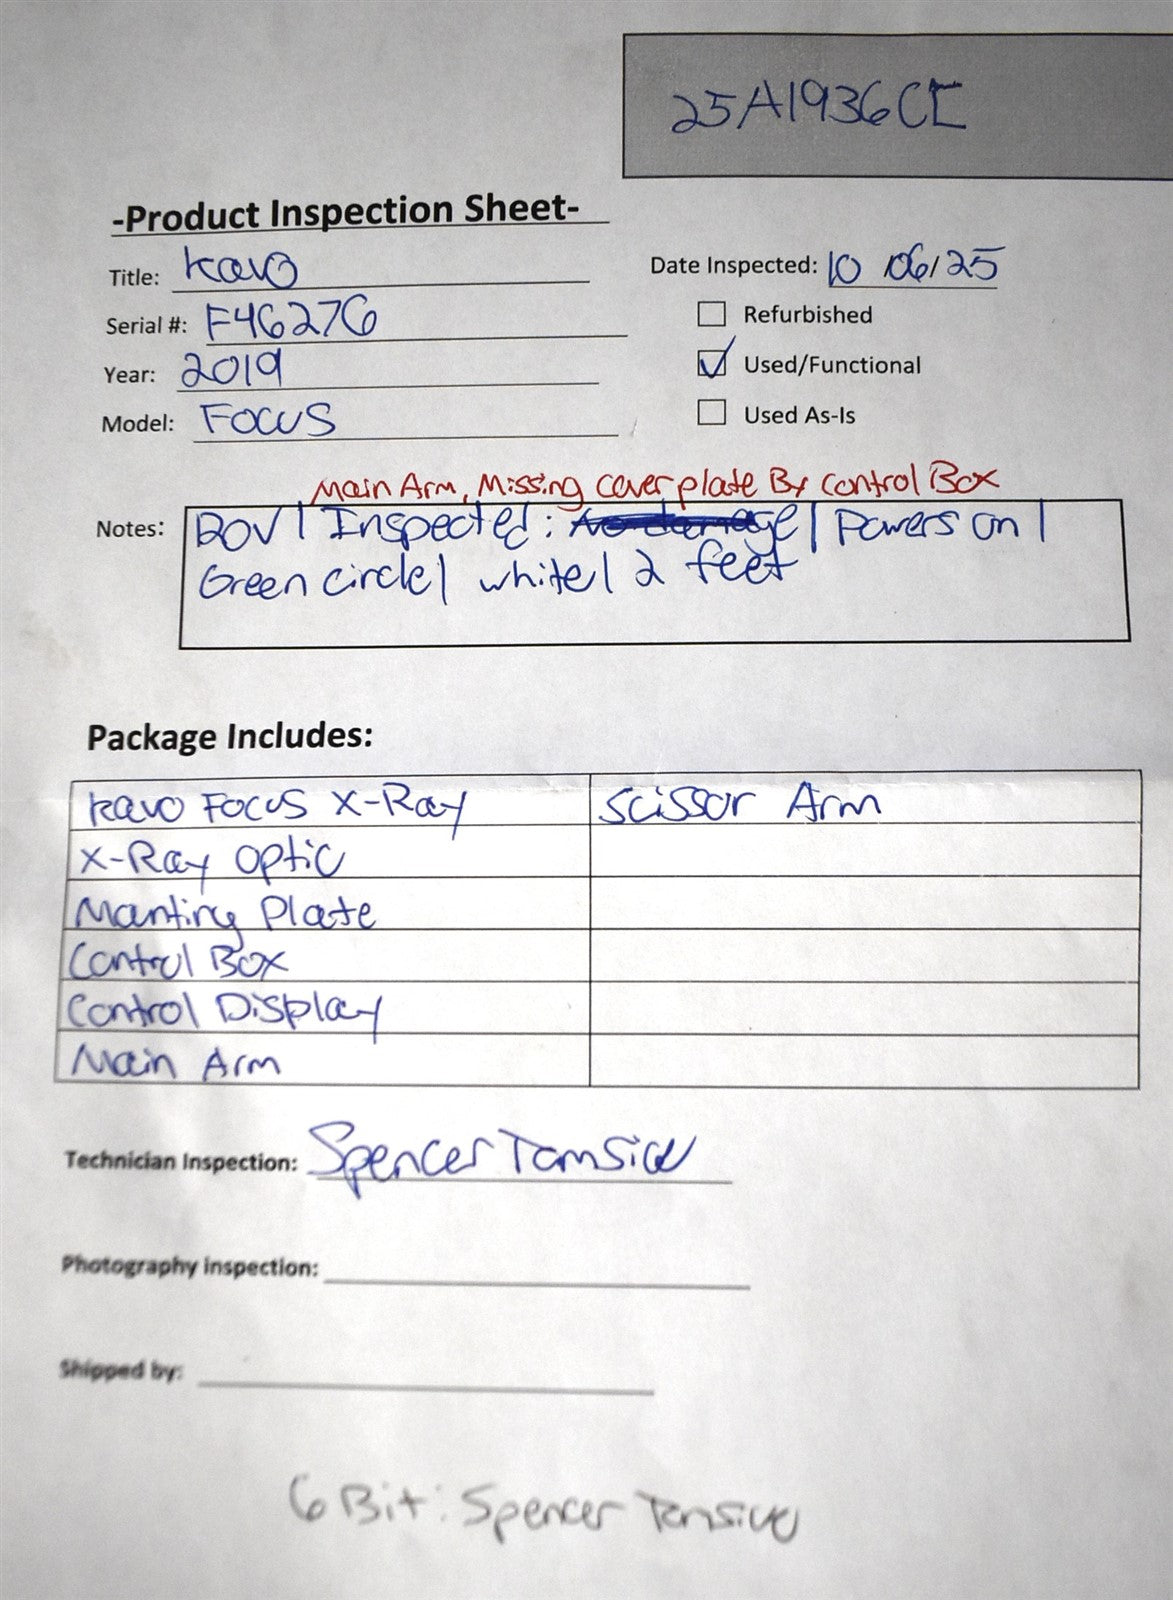 25A1936CE
-Product Inspection Sheet-
Title: Kavo
Date Inspected: 10/06/25
Serial #: F46276
Refurbished
Year: 2019
Used/Functional
Model: Focus
Used As-Is
Main Arm, Missing cover plate By Control Box
Notes: BOV | Inspected: No damage | Powers on |
Green circle | white | 2 feet
Package Includes:
Kavo Focus X-Ray
Scissor Arm
X-Ray Optic
Manting Plate
Control Box
Control Display
Main Arm
Technician Inspection: Spencer
Photography inspection:
Shipped by:
6 Bit: Spencer